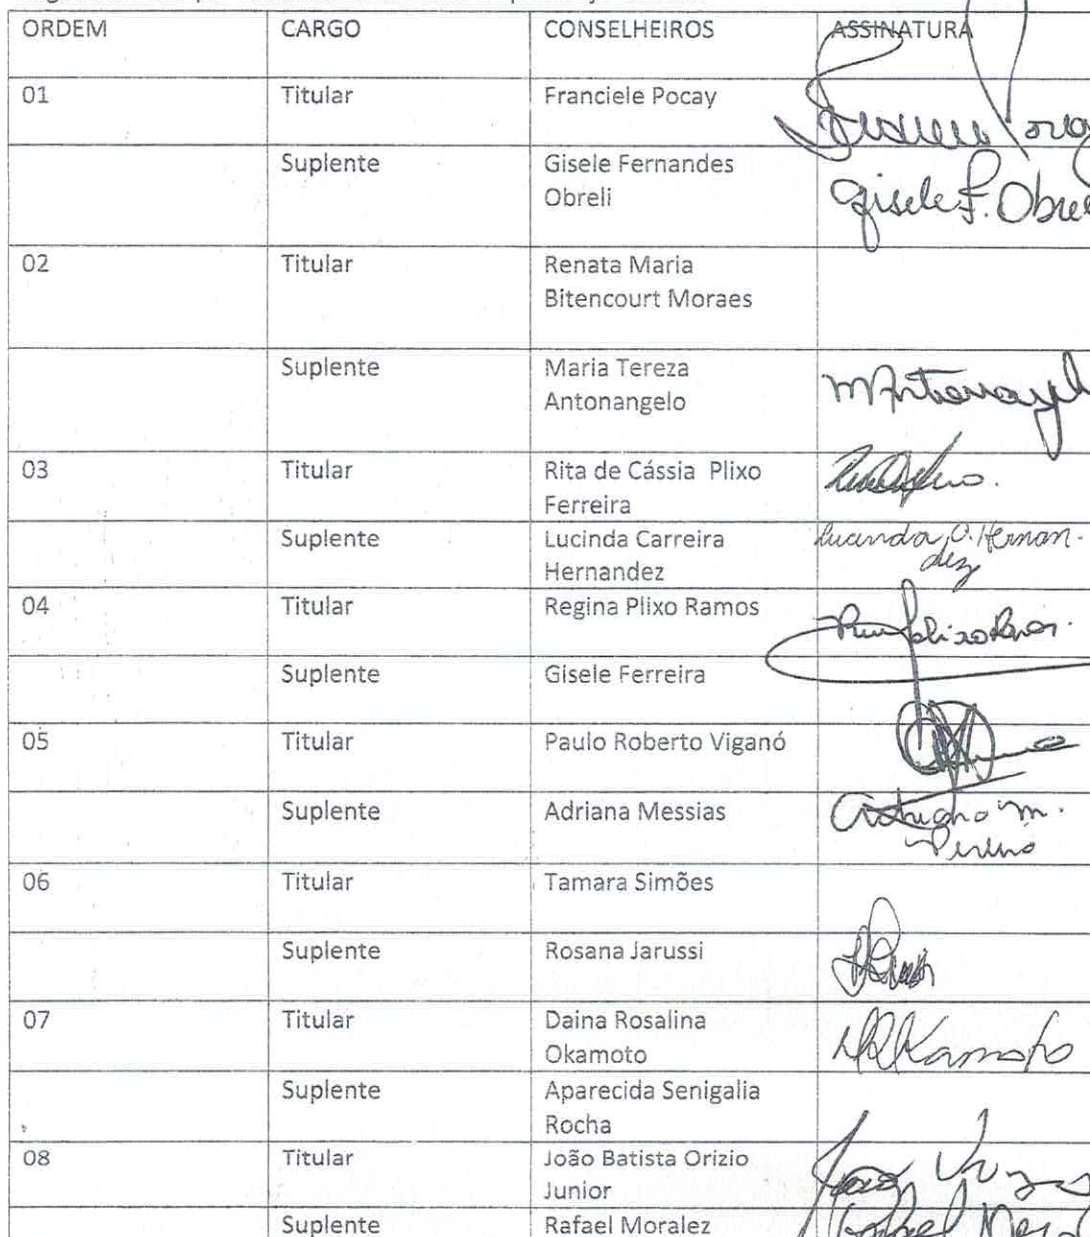 ORDEM CARGO CONSELHEIROS ASSINATURA
01 Titular Franciele Pocay
Suplente Gisele Fernandes
Obreli
Gisele F. Obre
02 Titular Renata Maria
Bitencourt Moraes
Suplente Maria Tereza
Antonangelo
03 Titular Rita de Cássia Plixo
Ferreira
Suplente Lucinda Carreira
Hernandez
Lucinda C. Hernan-
dez
04 Titular Regina Plixo Ramos
Suplente Gisele Ferreira
05 Titular Paulo Roberto Viganó
Suplente Adriana Messias
Adriana M.
06 Titular Tamara Simões
Suplente Rosana Jarussi
07 Titular Daina Rosalina
Okamoto
Suplente Aparecida Senigalia
Rocha
08 Titular João Batista Orizio
Junior
Suplente Rafael Moralez